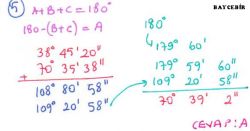 BAYCEBİR
5) A+B+C=180°
180-(B+C)=A
38° 45' 20"
70° 35' 38"
+
108° 80' 58"
109° 20' 58"
180°
179° 60'
179° 59' 60"
109° 20' 58"
-
70° 39' 2"
CEVAP: A